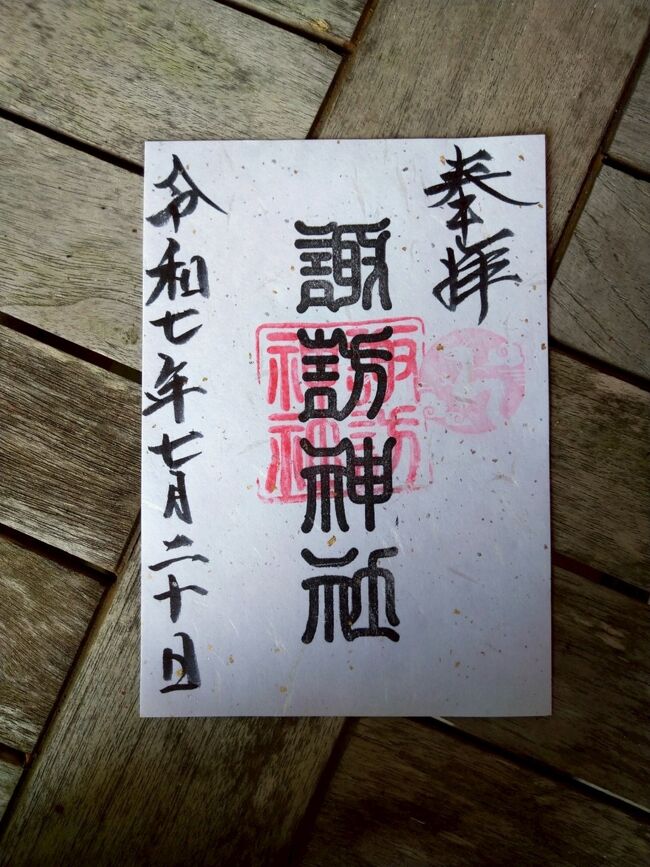 奉拝
諏訪神社
諏訪
神社
令和七年七月二十日